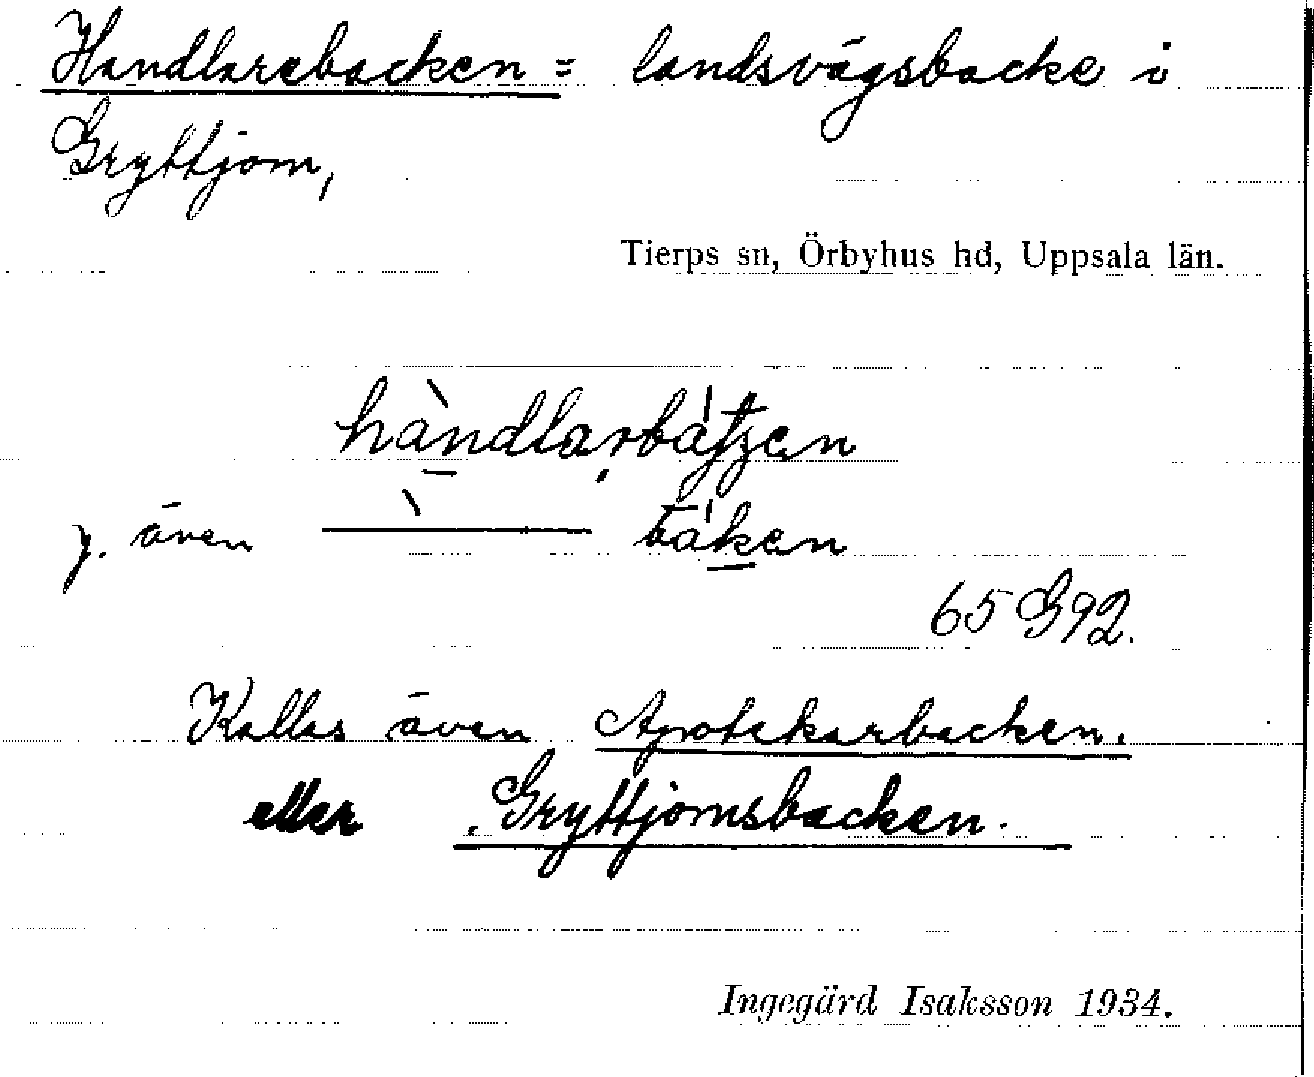 Handlarebacken = landsvägsbacke i
Gryttjom,
Tierps sn, Örbyhus hd, Uppsala län.
y. även bàken
65 G92.
Kallas även Apotekarbacken.
eller Gryttjomsbacken.
Ingegärd Isaksson 1934.